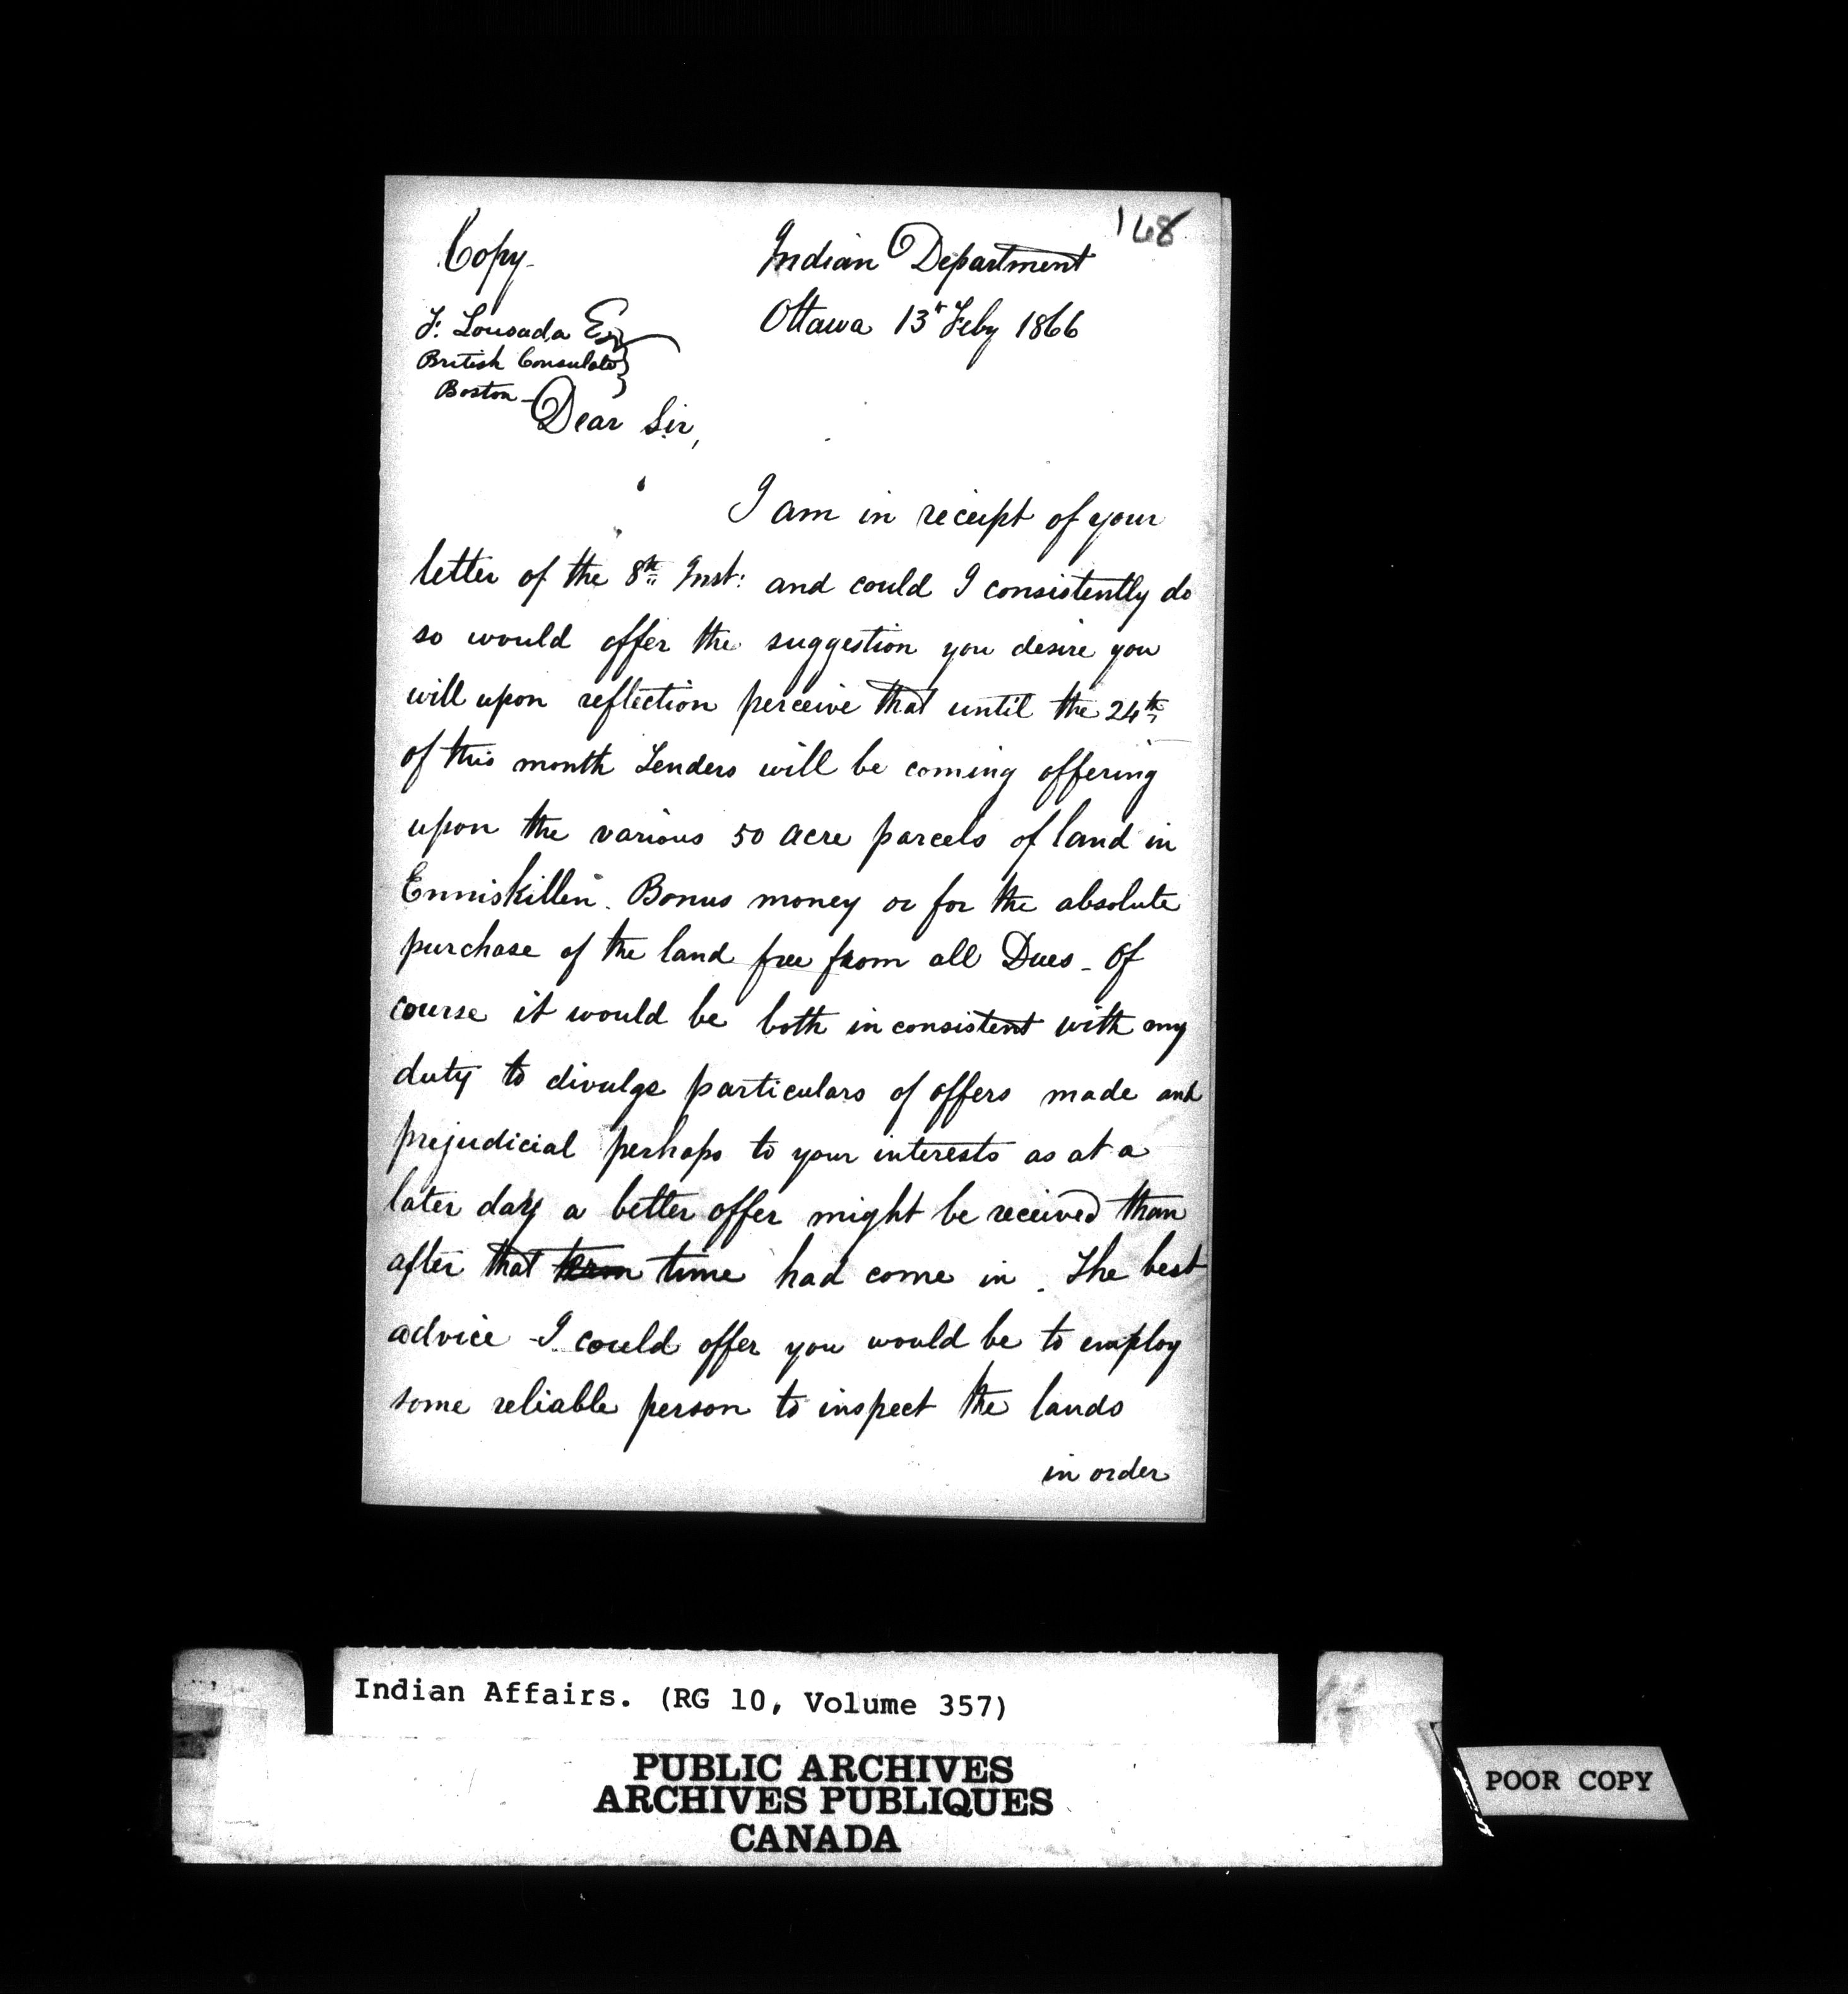 168
Copy
Indian Department
Ottawa 13th Feby 1866
F. Lousada Esq
British Consulate
Boston
Dear Sir,
I am in receipt of your
letter of the 8th Inst: and could I consistently do
so would offer the suggestion you desire you
will upon reflection perceive that until the 24th
of this month Tenders will be coming offering
upon the various 50 acre parcels of land in
Enniskillen. Bonus money or for the absolute
purchase of the land free from all Dues - Of
course it would be both inconsistent with my
duty to divulge particulars of offers made and
prejudicial perhaps to your interests as at a
later day a better offer might be received than
after that term time had come in. The best
advice I could offer you would be to employ
some reliable person to inspect the lands
in order
Indian Affairs. (RG 10, Volume 357)
PUBLIC ARCHIVES
ARCHIVES PUBLIQUES
CANADA
POOR COPY